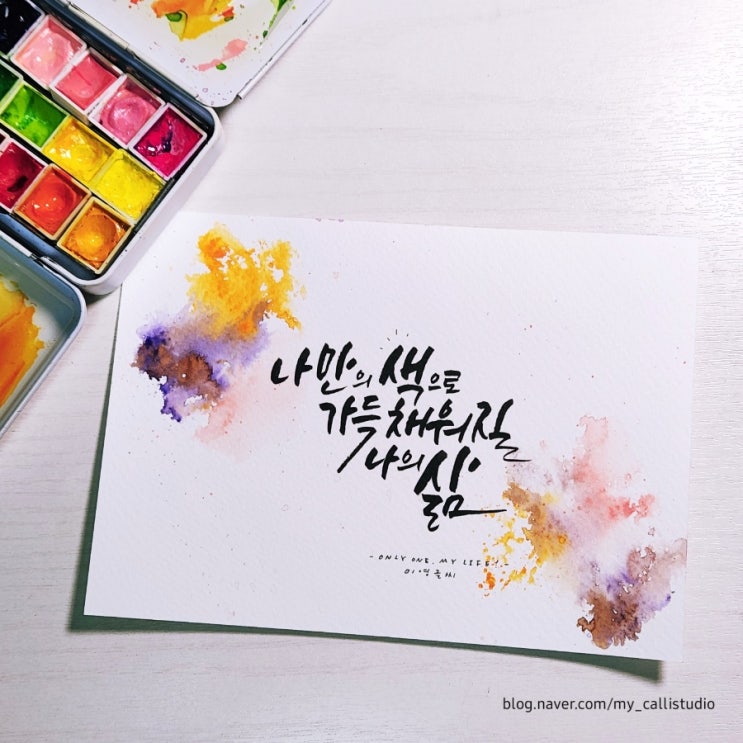 나만의 색으로
가득 채워질
나의 삶
- ONLY ONE, MY LIFE! -
미영글씨
blog.naver.com/my_callistudio